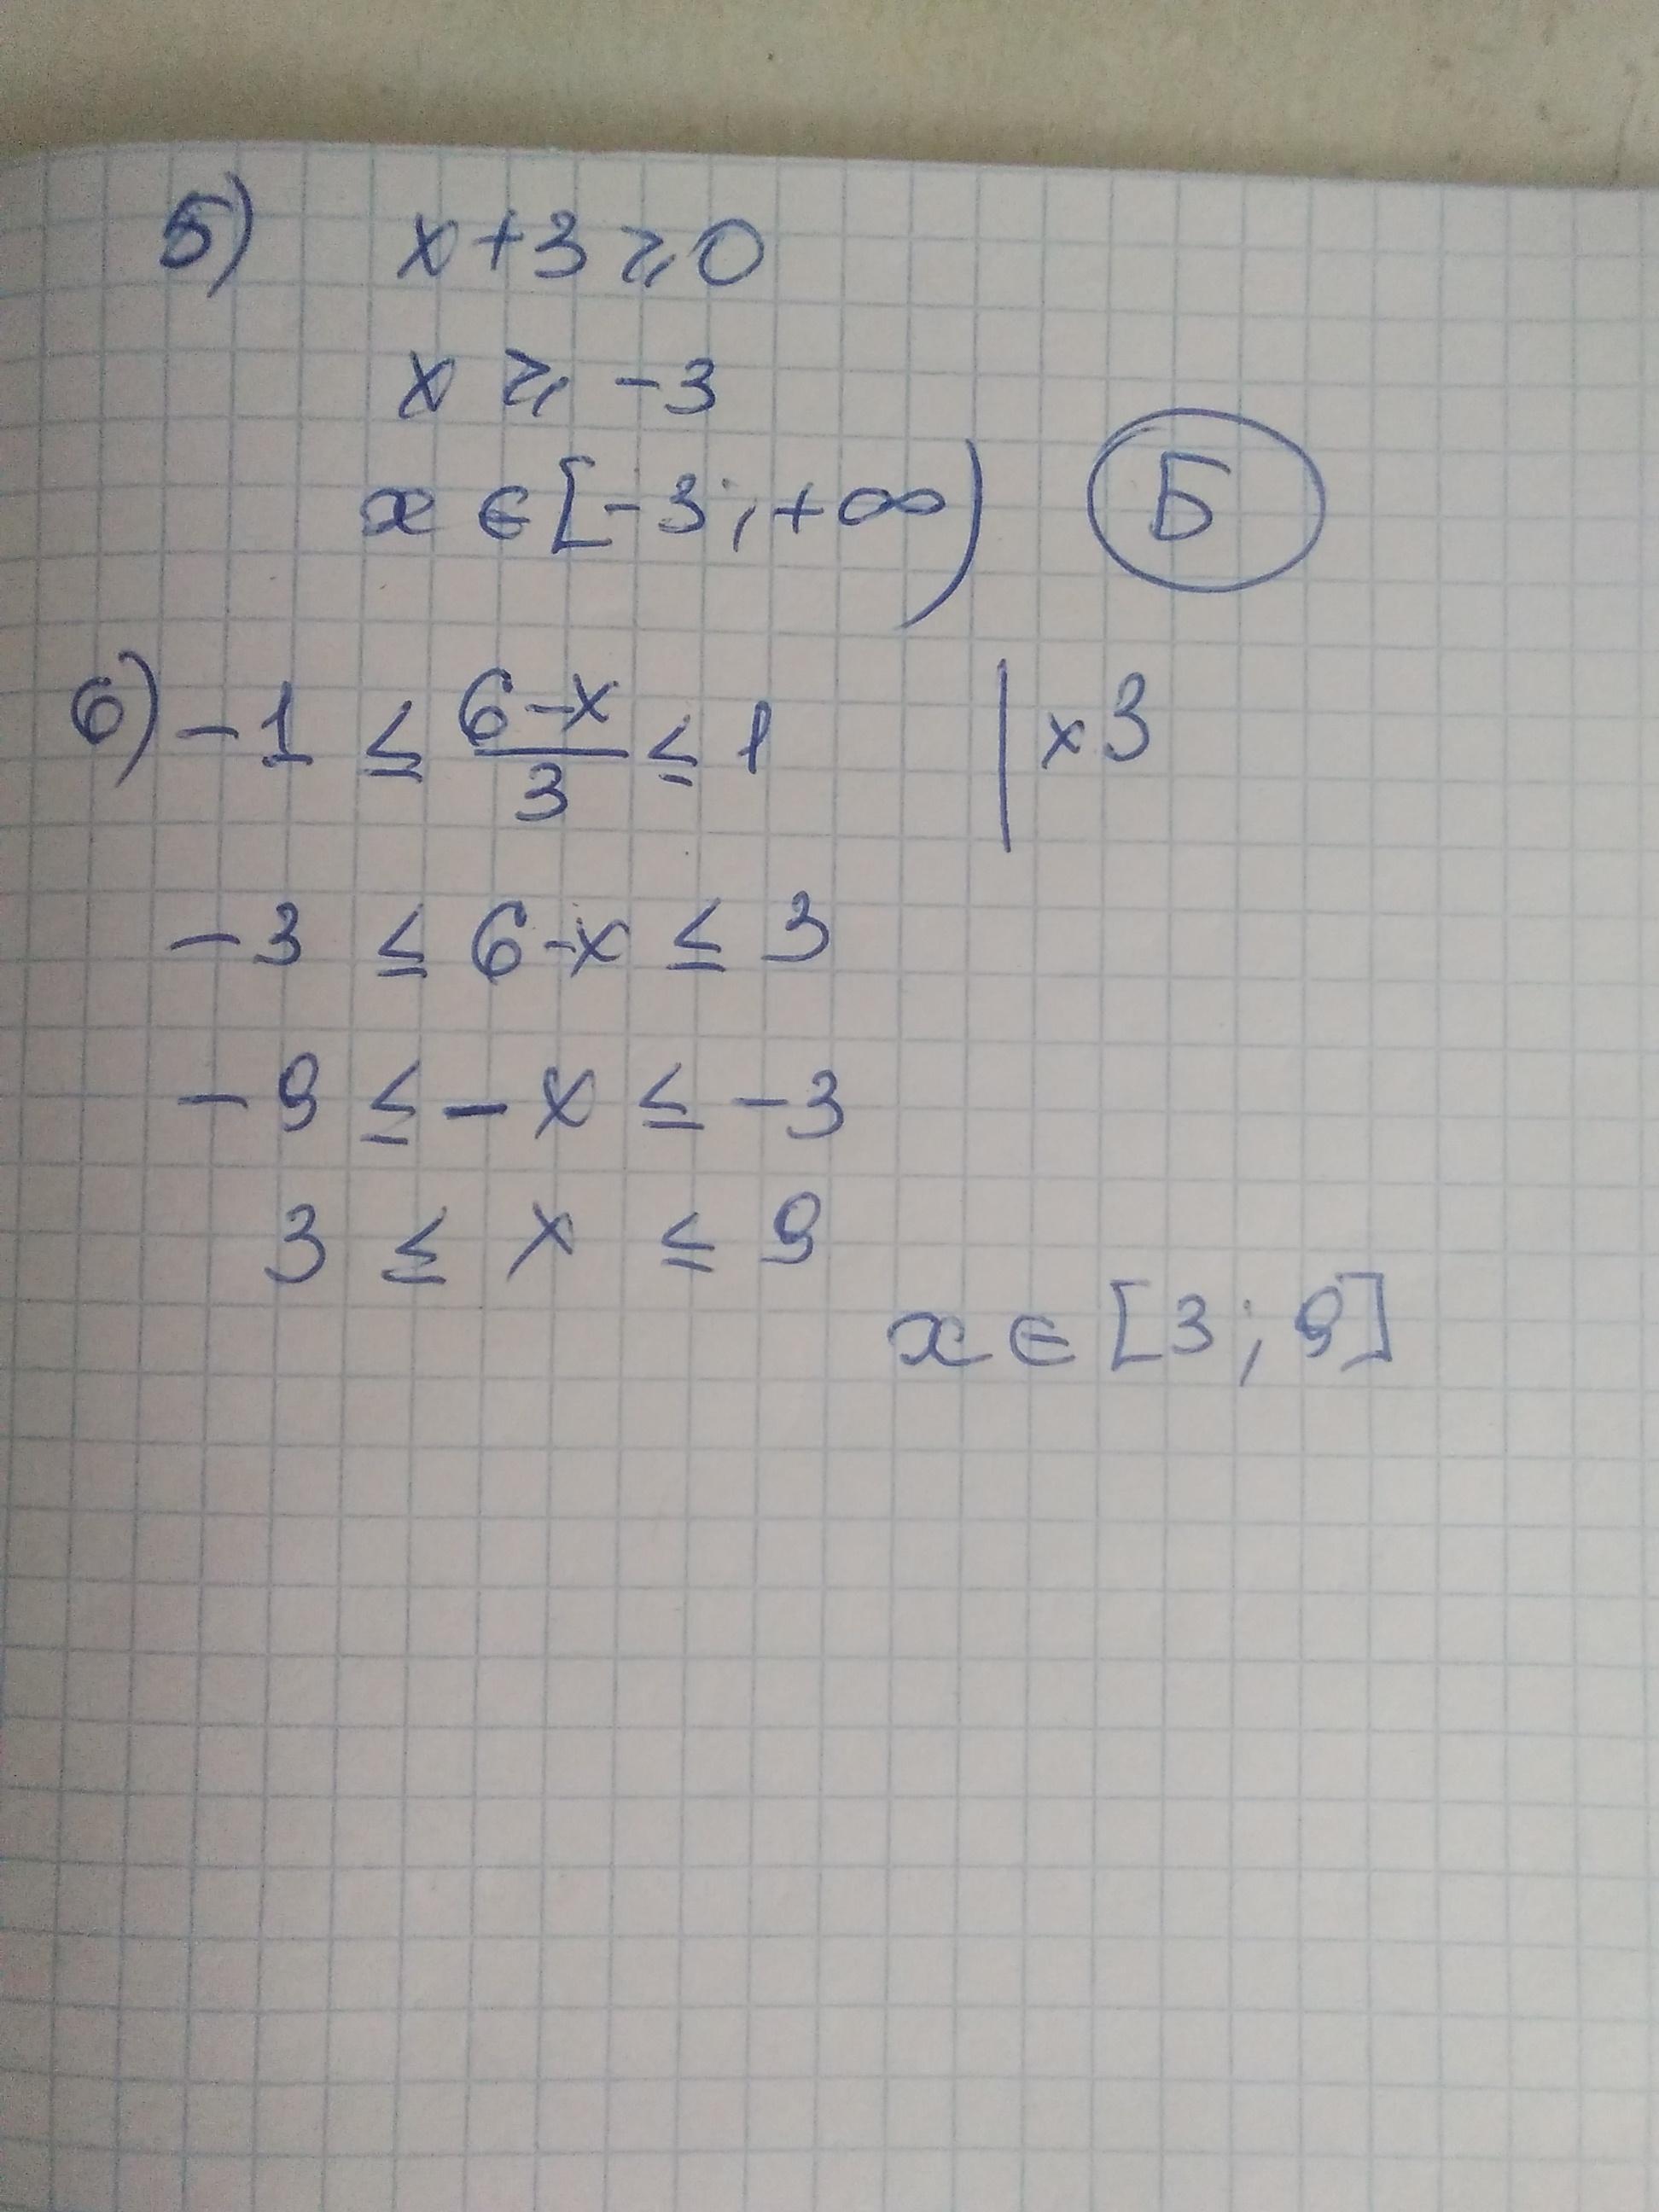 5) x+3⩾0
x ⩾ -3
x ∈ [-3; +∞) Б
6) -1 ≤ (6-x)/3 ≤ 1 | ×3
-3 ≤ 6-x ≤ 3
-9 ≤ -x ≤ -3
3 ≤ x ≤ 9
x ∈ [3; 9]